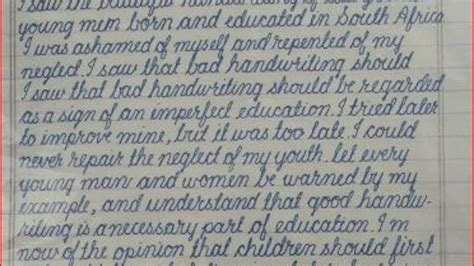 I saw the beautiful handwriting of
young men born and educated in South Africa
I was ashamed of myself and repented of my
neglect. I saw that bad handwriting should
I saw that bad handwriting should be regarded
as a sign of an imperfect education. I tried later
to improve mine, but it was too late. I could
never repair the neglect of my youth. let every
young man and women be warned by my
example, and understand that good handw-
riting is a necessary part of education. I m
now of the opinion that children should first